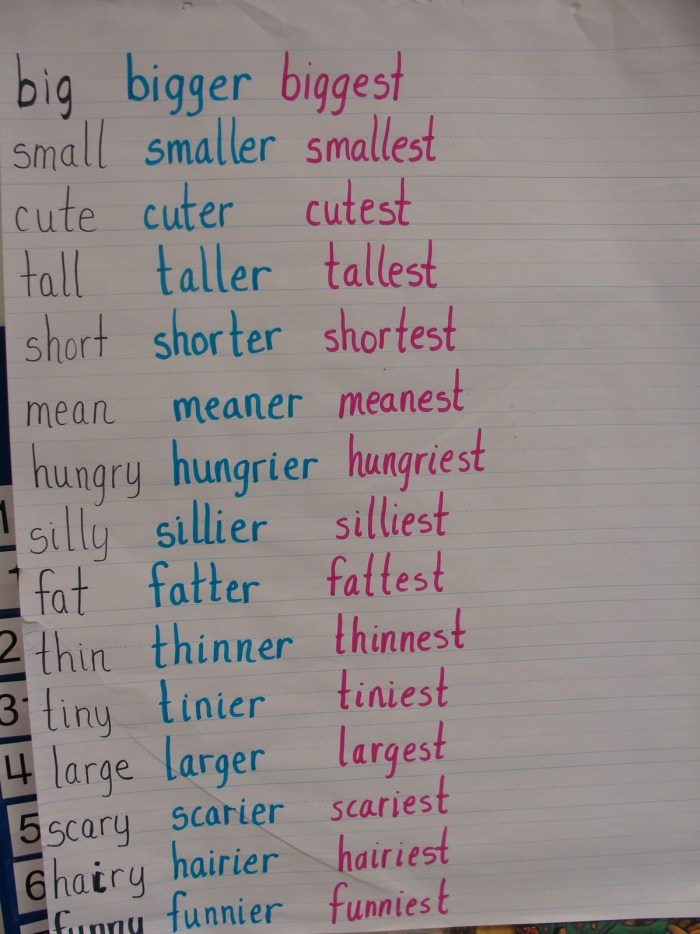 big bigger biggest
small smaller smallest
cute cuter cutest
tall taller tallest
short shorter shortest
mean meaner meanest
hungry hungrier hungriest
1 silly sillier silliest
fat fatter fattest
2 thin thinner thinnest
3 tiny tinier tiniest
4 large larger largest
5 scary scarier scariest
6 hairy hairier hairiest
funny funnier funniest